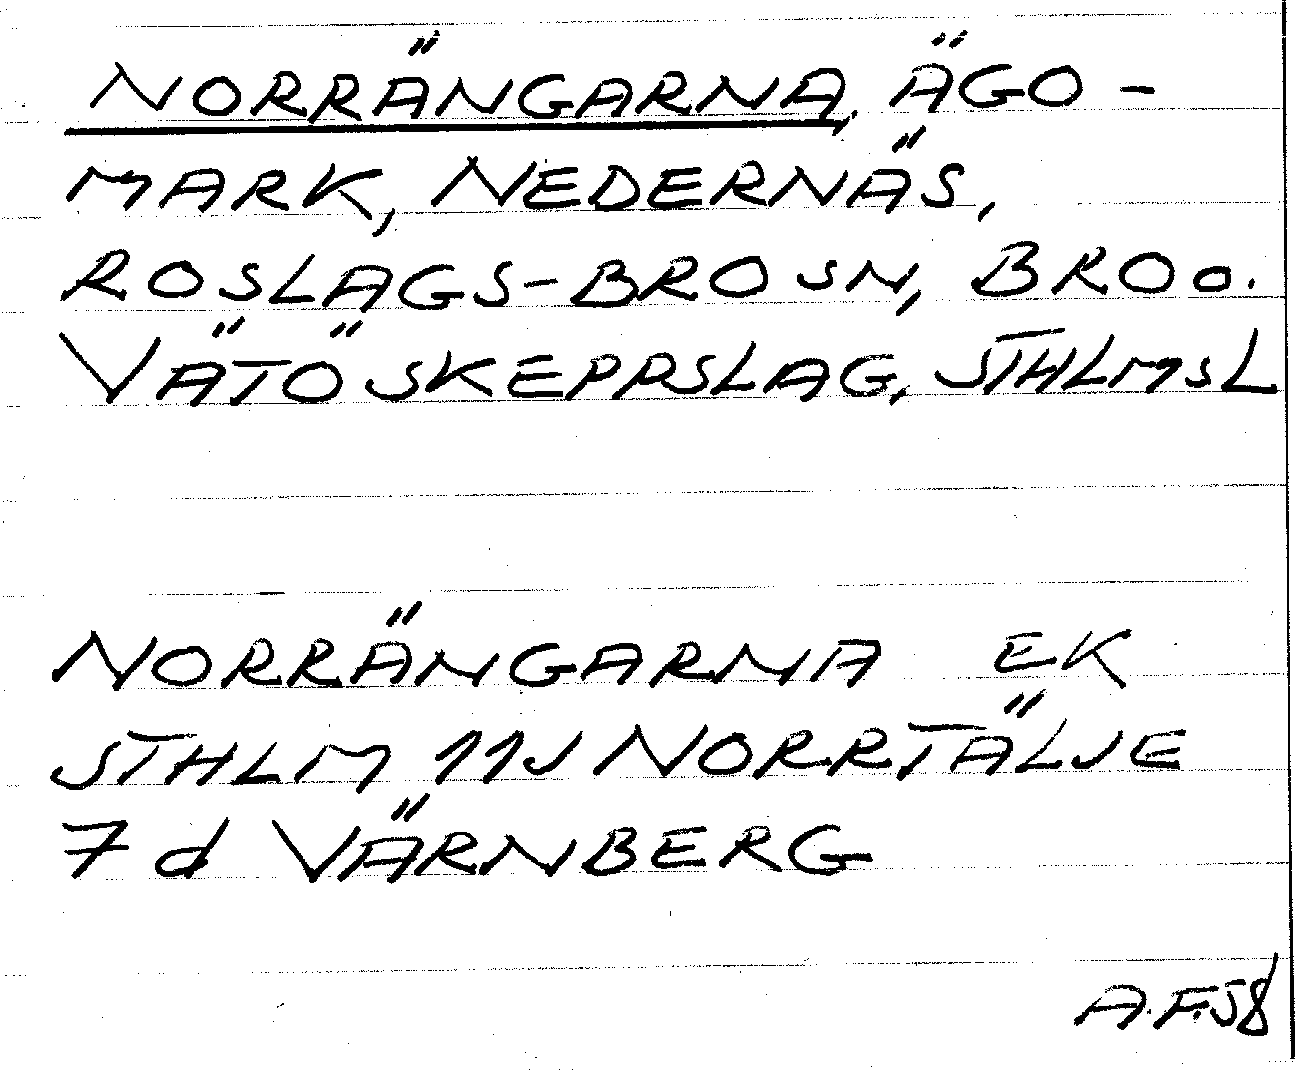 NORRÄNGARNA, ÄGO-
MARK, NEDERNÄS,
ROSLAGS-BRO SN, BRO O.
VÄTÖ SKEPPSLAG, STHLMSL
NORRÄNGARNA EK
STHLM 11J NORRTÄLJE
7 d VÄRNBERG
A.F.58